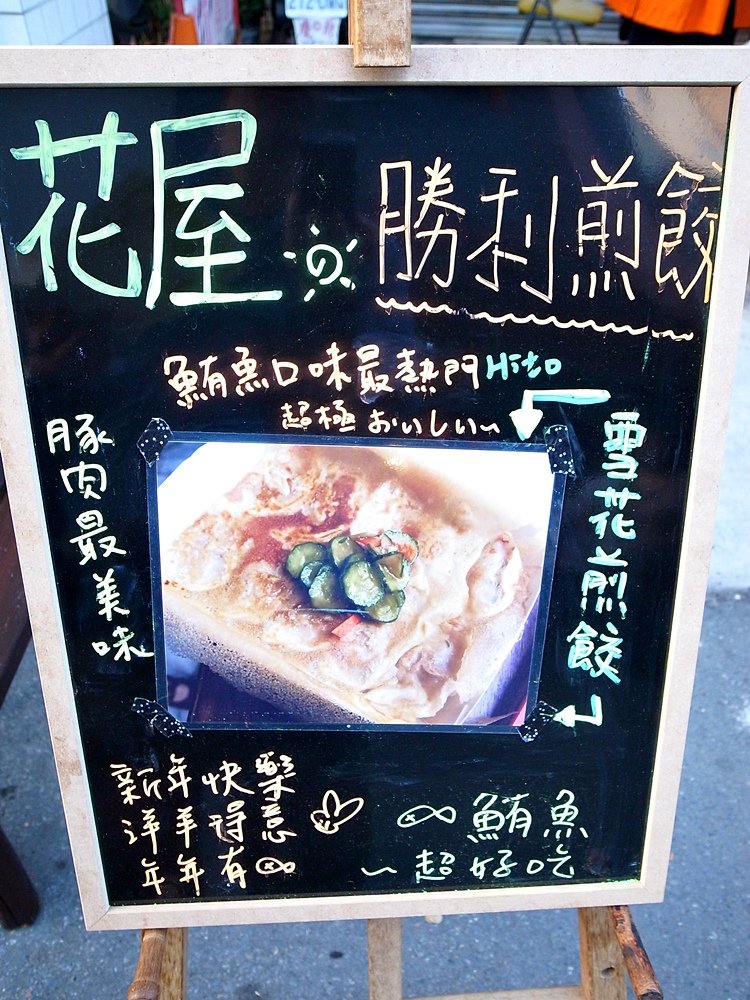 花屋の勝利煎餃
鮪魚口味最熱門Hito
超極おいしい~
豚肉最美味
雪花煎餃
新年快樂
洋羊得意
年年有
鮪魚
~超好吃